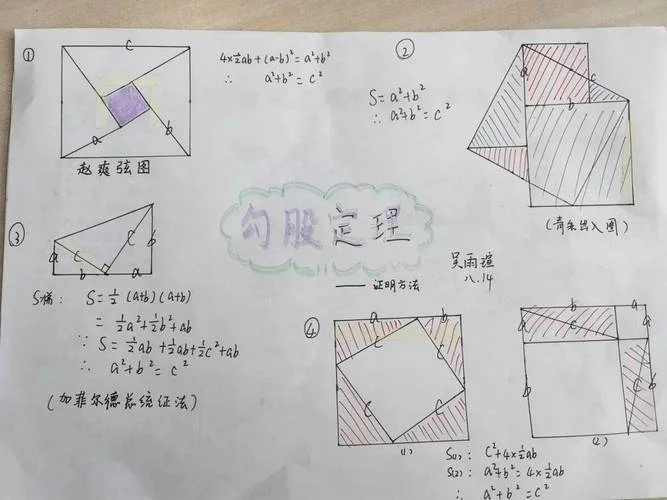 ①
c
a
b
赵爽弦图
4×½ab+(a-b)²=a²+b²
∴ a²+b²=c²
②
S=a²+b²
∴ a²+b²=c²
a
c
b
(青朱出入图)
勾股定理
—— 证明方法
吴雨瑄
八.14
③
a
c
b
c
a
b
S梯: S=½(a+b)(a+b)
=½a²+½b²+ab
∵ S=½ab+½ab+½c²+ab
∴ a²+b²=c²
(加菲尔德总统证法)
④
a
b
c
c
c
c
(1)
b
a
a
c
a
b
c
b
(2)
S(1): c²+4×½ab
S(2): a²+b²=4×½ab
∴ a²+b²=c²